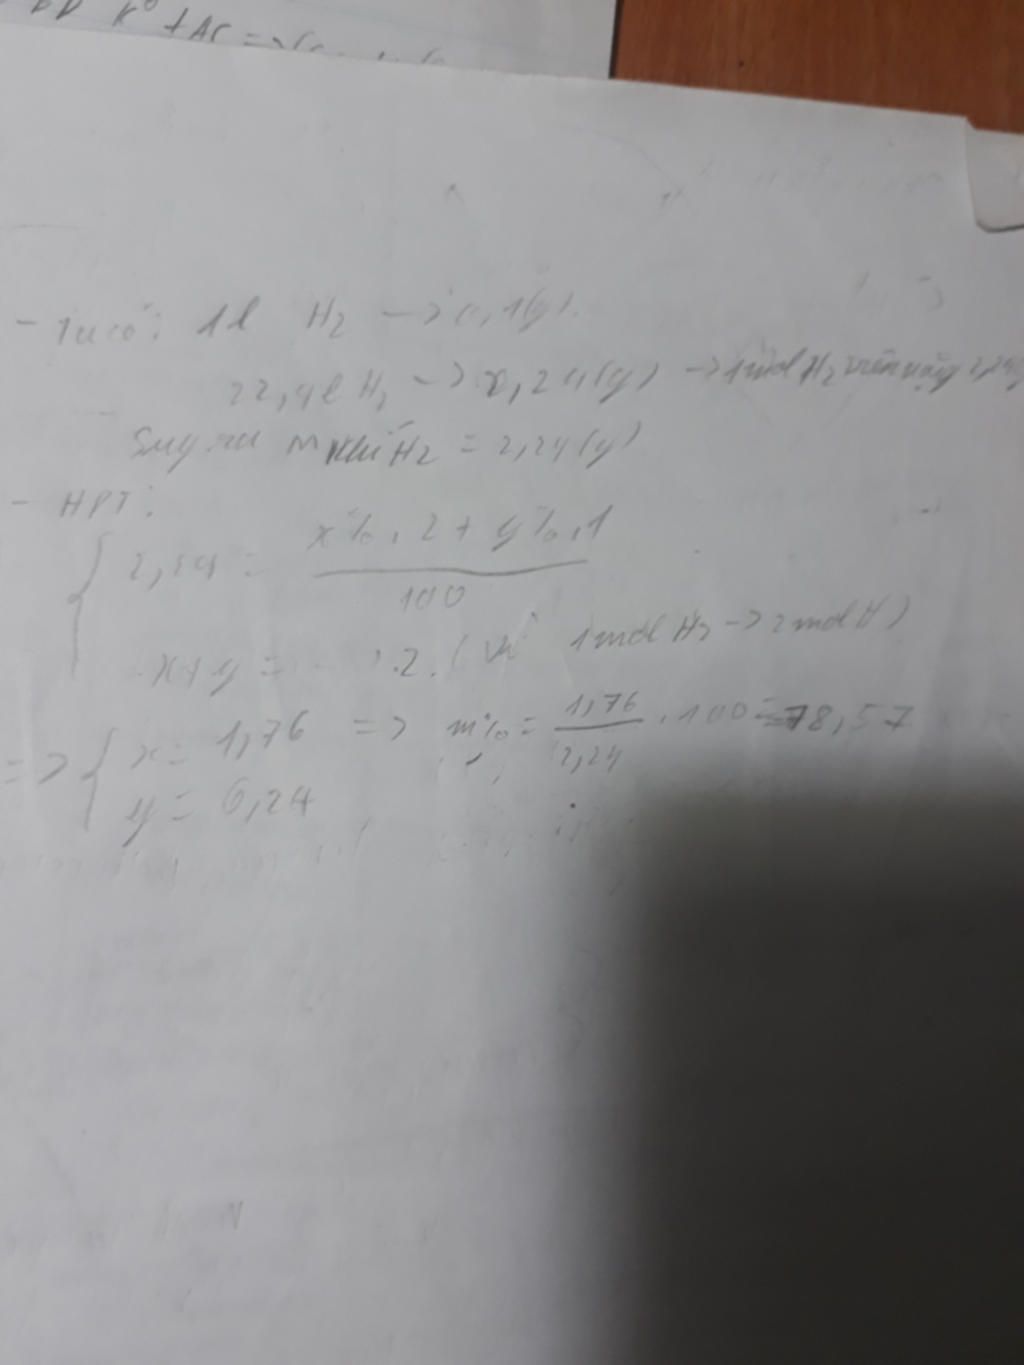 K⁰ + AC =>
- Ta có: 1l H₂ -> 0,1(g).
22,4l H₂ -> 2,24(g) -> 1 mol H₂ nặng 2,24g
Suy ra m khí H₂ = 2,24(g)
- HPT:
{ 2,24 = (x%.2 + y%.1) / 100
x+y = 2. (Vì 1mol H₂ -> 2mol H)
=> { x = 1,76 => m% = 1,76 / 2,24 . 100 = 78,57
y = 0,24